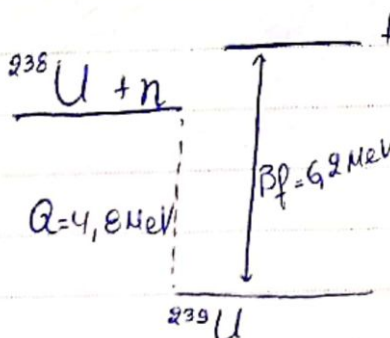 ²³⁸U + n
Q=4,8 MeV
Bf=6,2 MeV
²³⁹U